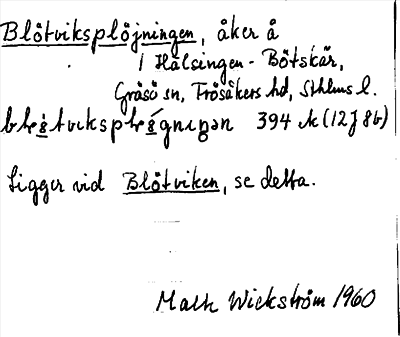 Blötviksplöjningen, åker å
/ Hälsingen-Bötskär,
Gräsö sn, Frösåkers hd, Sthlms l.
394 M (12 J 8b)
Ligger vid Blötviken, se detta.
Wickström 1960